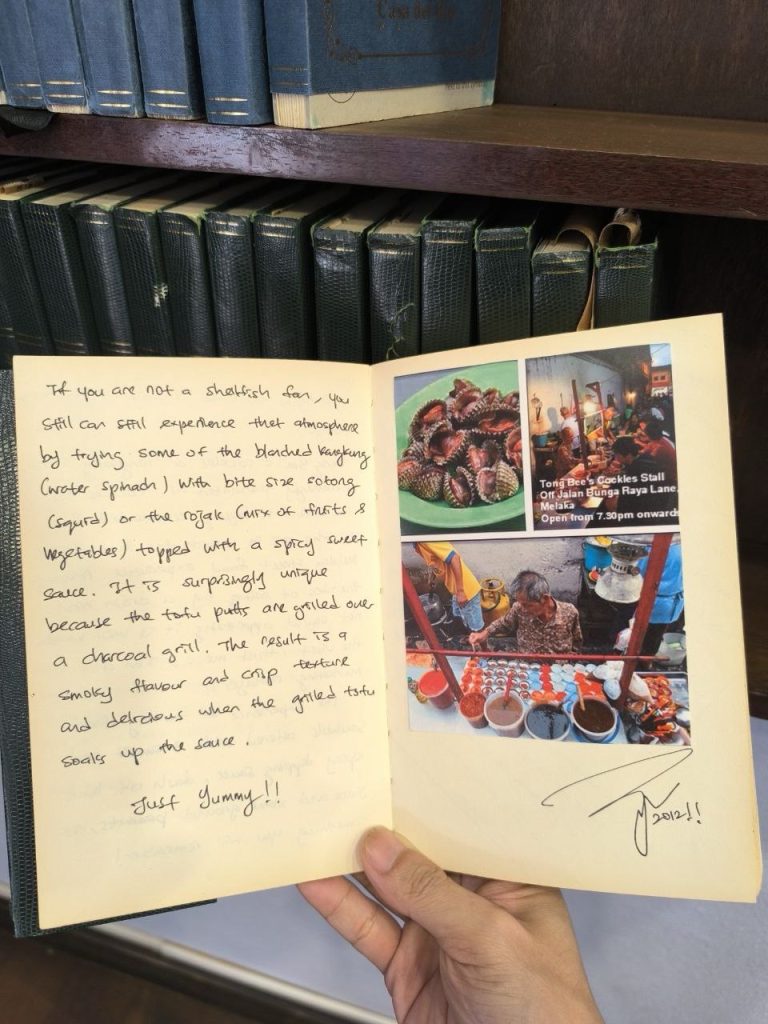 Casa del Rio
If you are not a shellfish fan, you
still can still experience that atmosphere
by trying some of the blanched kangkung
(water spinach) with bite size sotong
(squid) or the rojak (mix of fruits &
vegetables) topped with a spicy sweet
sauce. It is surprisingly unique
because the tofu puffs are grilled over
a charcoal grill. The result is a
smoky flavour and crisp texture
and delicious when the grilled tofu
soaks up the sauce.
Just Yummy!!
Tong Bee's Cockles Stall
Off Jalan Bunga Raya Lane,
Melaka
Open from 7.30pm onwards
2012!!